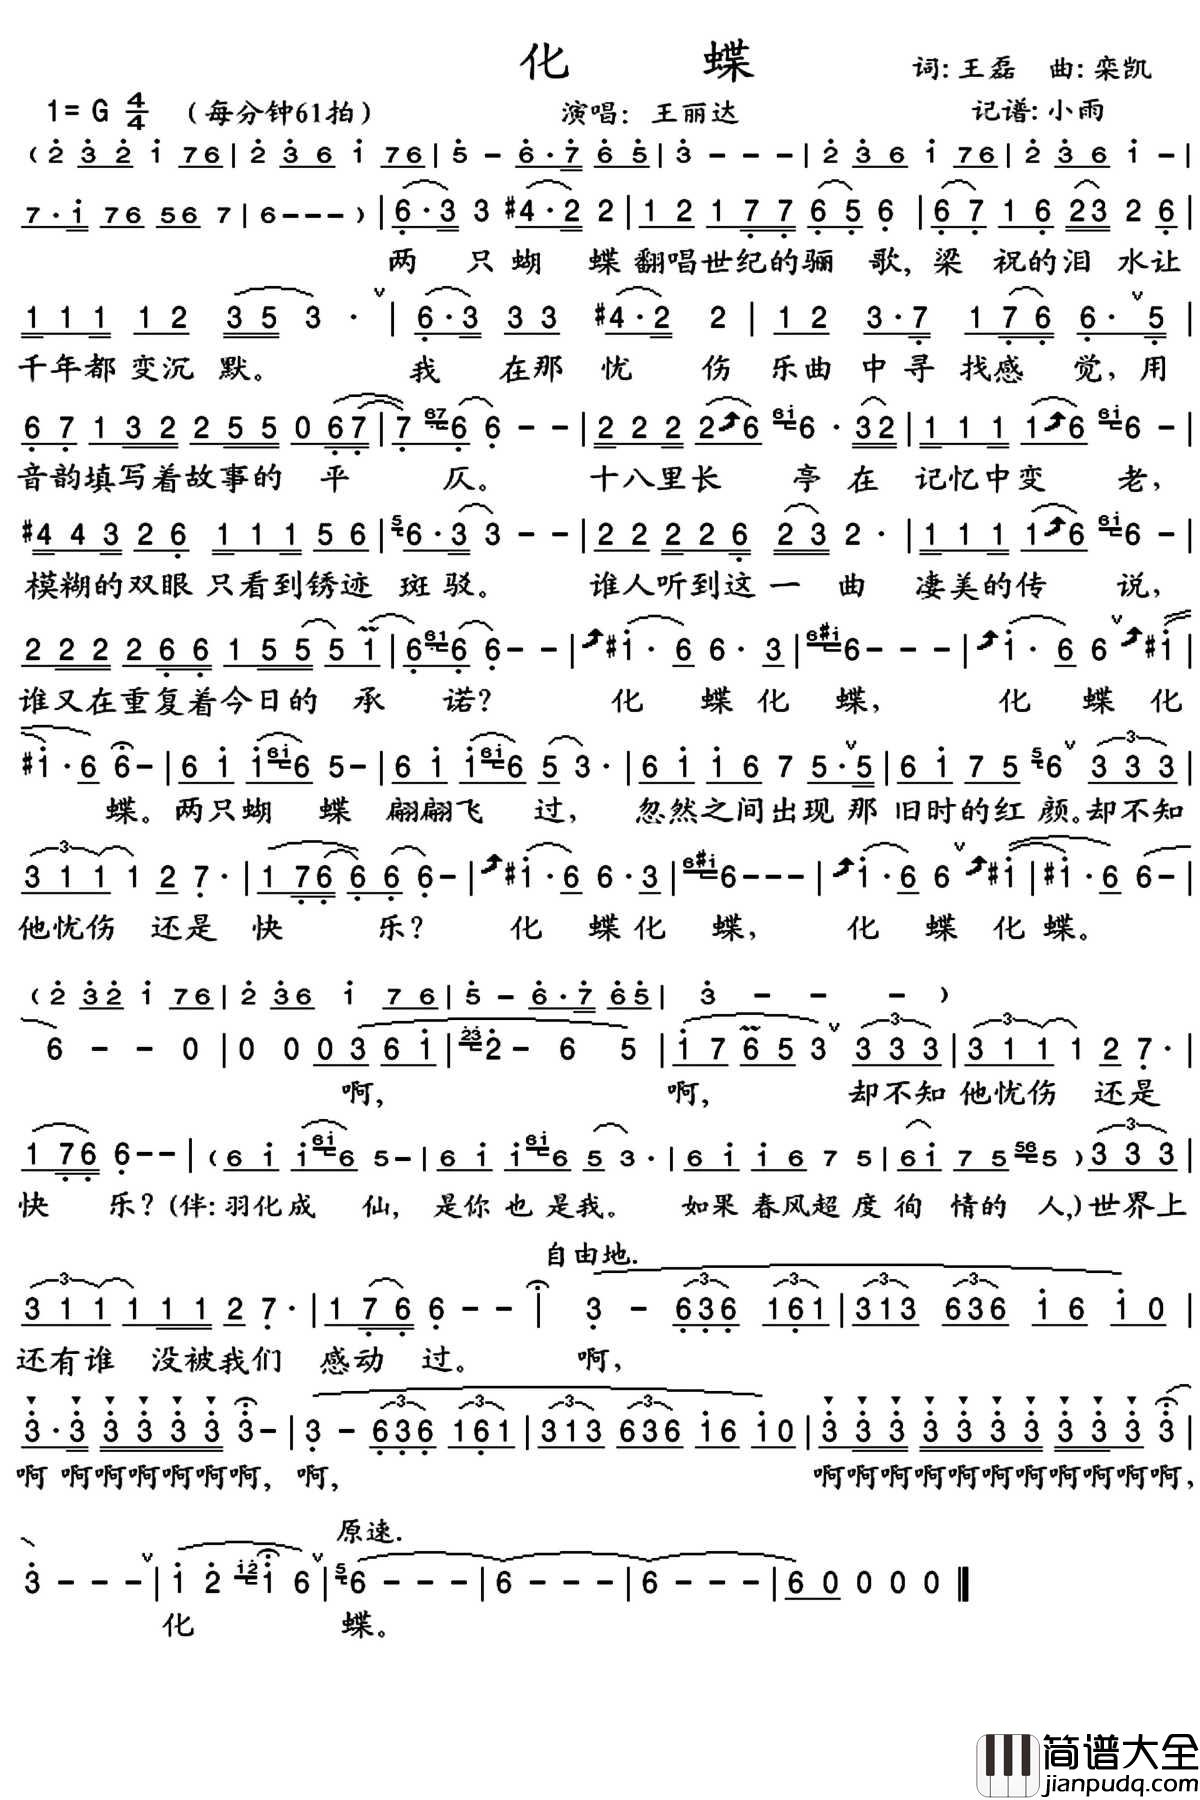 化 蝶
词: 王磊 曲: 栾凯
1= G 4/4 （每分钟61拍） 演唱: 王丽达 记谱: 小雨
( 2 3 2 i 7 6 | 2 3 6 i 7 6 | 5 - 6 · 7 6 5 | 3 - - - | 2 3 6 i 7 6 | 2 3 6 i - |
7 · i 7 6 5 6 7 | 6 - - - ) | 6 · 3 3 #4 · 2 2 | 1 2 1 7 7 6 5 6 | 6 7 1 6 2 3 2 6 |
两 只 蝴 蝶 翻唱世纪的骊 歌, 梁 祝的泪 水让
1 1 1 1 2 3 5 3 · v | 6 · 3 3 3 #4 · 2 2 | 1 2 3 · 7 1 7 6 6 · v 5 |
千年都 变沉 默。 我 在那 忧 伤 乐曲 中寻 找感 觉, 用
6 7 1 3 2 2 5 5 0 6 7 | 7 67 6 6 - - | 2 2 2 2 6 6i 6 · 3 2 | 1 1 1 1 6 6i 6 - |
音韵填写着故事的 平 仄。 十八里长 亭 在 记忆中变 老,
#4 4 3 2 6 1 1 1 5 6 | 5 6 · 3 3 - - | 2 2 2 2 2 6 2 3 2 · | 1 1 1 1 6 6i 6 - |
模糊的双眼 只看到锈迹 斑 驳。 谁人听到这 一 曲 凄美的传 说,
2 2 2 2 6 6 1 5 5 5 1 | 6 61 6 6 - - | #i · 6 6 · 3 | 6#i 6 - - - | i · 6 6 v #i |
谁又在重复着今日的 承 诺? 化 蝶化 蝶, 化 蝶 化
#i · 6 6 - | 6 i i 6i 6 5 - | 6 i i 6i 6 5 3 · | 6 i i 6 7 5 · v 5 | 6 i 7 5 5 6 v 3 3 3 |
蝶。两只蝴 蝶 翩翩飞 过, 忽然之间出现那 旧时的红 颜。却不知
3 1 1 1 2 7 · | 1 7 6 6 6 6 - | #i · 6 6 · 3 | 6#i 6 - - - | i · 6 6 v #i | #i · 6 6 |
他忧伤 还是 快 乐? 化 蝶化 蝶, 化 蝶 化 蝶。
( 2 3 2 i 7 6 | 2 3 6 i 7 6 | 5 - 6 · 7 6 5 | 3 - - - )
6 - - 0 | 0 0 0 3 6 i | 23 2 - 6 5 | i 7 6 5 3 v 3 3 3 | 3 1 1 1 2 7 · |
啊, 啊, 却不知 他忧伤 还是
1 7 6 6 - - | ( 6 i i 6i 6 5 - | 6 i i 6i 6 5 3 · | 6 i i 6 7 5 | 6 i 7 5 56 5 ) 3 3 3 |
快 乐? (伴: 羽化成 仙, 是你也是我。 如果春风超度徇 情的 人,) 世界上
自由地.
3 1 1 1 1 1 2 7 · | 1 7 6 6 - - | 3 - 6 3 6 1 6 1 | 3 1 3 6 3 6 i 6 i 0 |
还有谁 没被我们 感动 过。 啊,
3 · 3 3 3 3 3 3 - | 3 - 6 3 6 1 6 1 | 3 1 3 6 3 6 i 6 i 0 | 3 3 3 3 3 3 3 3 3 3 |
啊 啊啊啊啊啊啊, 啊, 啊啊啊啊啊啊啊啊啊啊啊,
原速.
3 - - - v | i 2 i2 i 6 v | 5 6 - - - | 6 - - - | 6 - - - | 6 0 0 0 0 ‖
化 蝶。
简谱大全
jianpudq.com